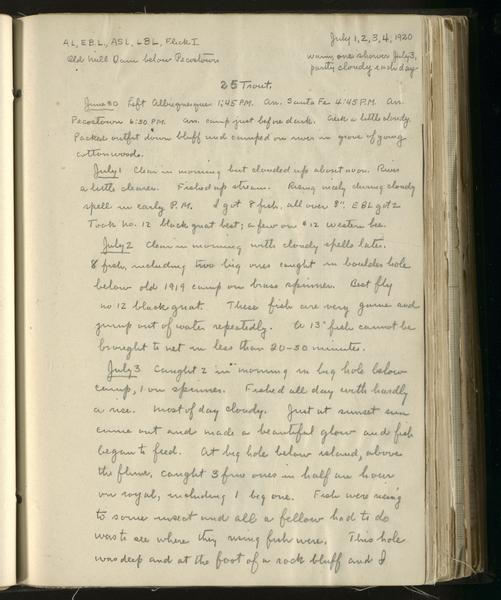 AL, E.B.L., ASL, LBL, Flick I
July 1, 2, 3, 4, 1920
Old Mill Dam below Pecostown
warm, one shower July 3,
partly cloudy each day
25 Trout.
June 30 Left Albuquerque 1:45 P.M. Arr. Santa Fe 4:45 P.M. Arr.
Pecostown 6:30 P.M. Arr. camp just before dark. a little cloudy.
Packed outfit down bluff and camped on river in grove of young
cottonwoods.
July 1 Clear in morning but clouded up about noon. River
a little clearer. Fished up stream. Rising nicely during cloudy
spell in early P.M. I got 8 fish, all over 8". EBL got 2
Took no. 12 black gnat best; a few on # 12 Western bee.
July 2 Clear in morning with cloudy spells later.
8 fish, including two big ones caught in boulder hole
below old 1919 camp on brass spinner. Best fly
no 12 black gnat. These fish are very game and
jump out of water repeatedly. 13" fish cannot be
brought to net in less than 20-30 minutes.
July 3 Caught 2 in morning in big hole below
camp, 1 on spinner. Fished all day with hardly
a rise. Most of day cloudy. Just at sunset sun
came out and made a beautiful glow and fish
began to feed. At big hole below island, above
the flume, caught 3 fine ones in half an hour
on royal, including 1 big one. Fish were rising
to some insect and all a fellow had to do
was to see where they rising fish were. This hole
was deep and at the foot of a rock bluff and I